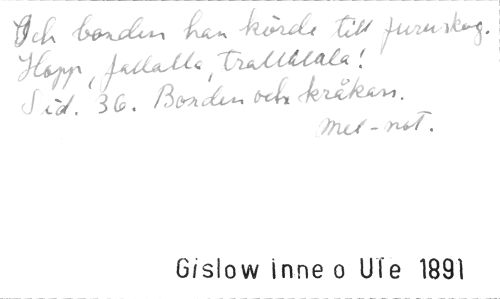 Och bonden han körde till furuskog.
Hopp, fallalla, trallalala!
Sid. 36. Bonden och kråkan.
Mel-not.
Gislow inne o Ute 1891